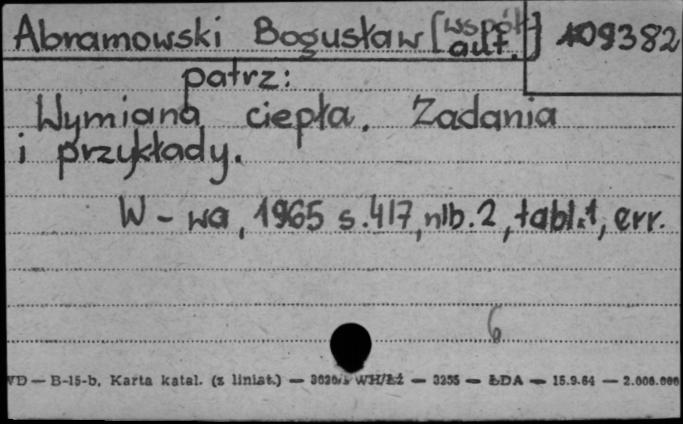 Abramowski Bogusław [współaut.] 109382
patrz:
Wymiana ciepła. Zadania
i przykłady.
W-wa, 1965 s. 417, nlb. 2, tabl. 1, err.
6
VD — B-15-b, Karta katal. (z liniat.) — WH/Łż — 3255 — ŁDA — 15.9.64 — 2.000.000